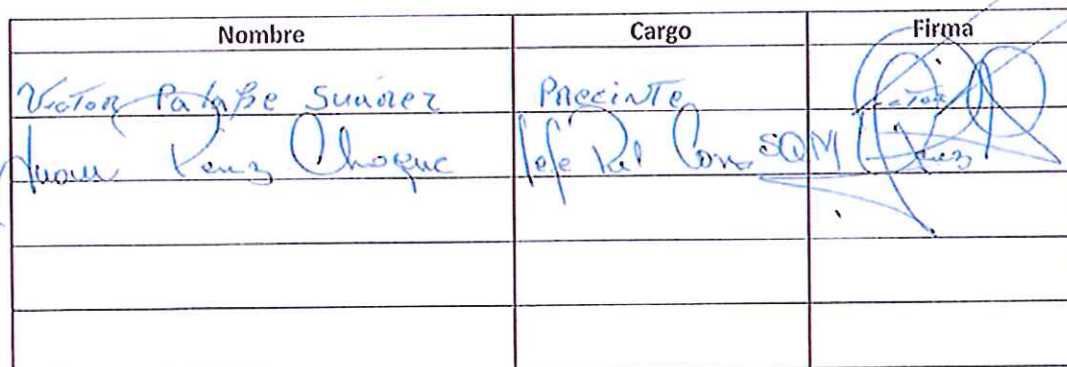 Nombre Cargo Firma
Victor Palape Suarez Precinte Victor
Juan Perez Choque Jefe Rel Com SQM Perez